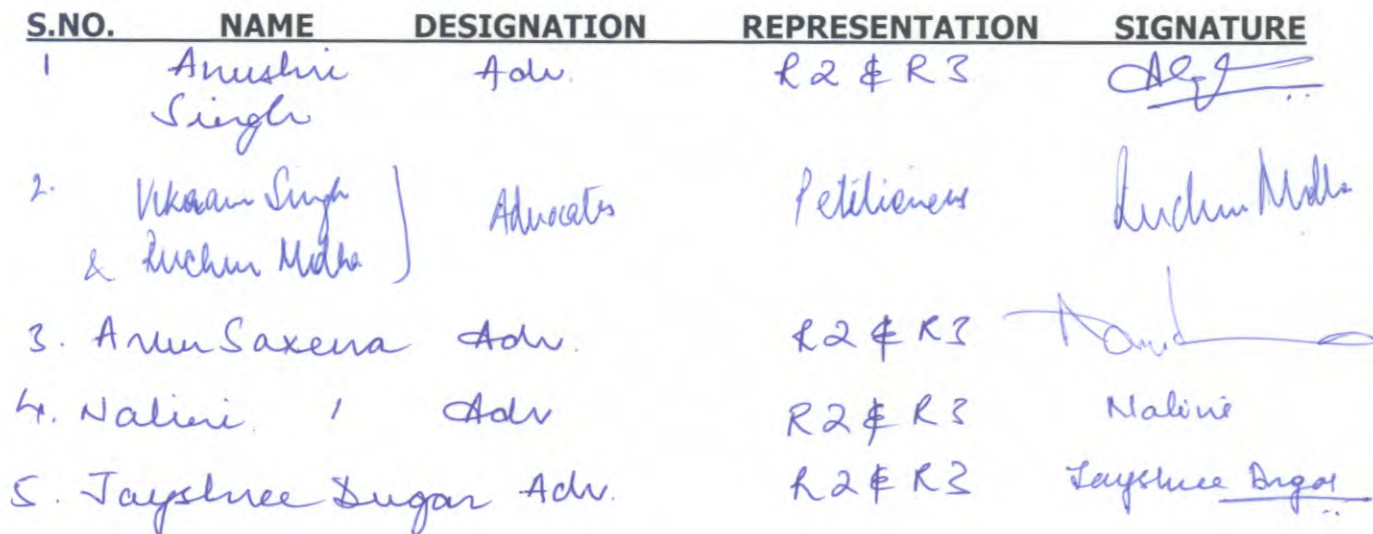 S.NO. NAME DESIGNATION REPRESENTATION SIGNATURE
1 Anushri Adv. R2 & R3
Singh
2. Vikram Singh Advocates Petitioners
&
3. Arun Saxena Adv. R2 & R3
4. Nalini Adv R2 & R3 Nalini
5. Jayshree Dugar Adv. R2 & R3 Jayshree Dugar